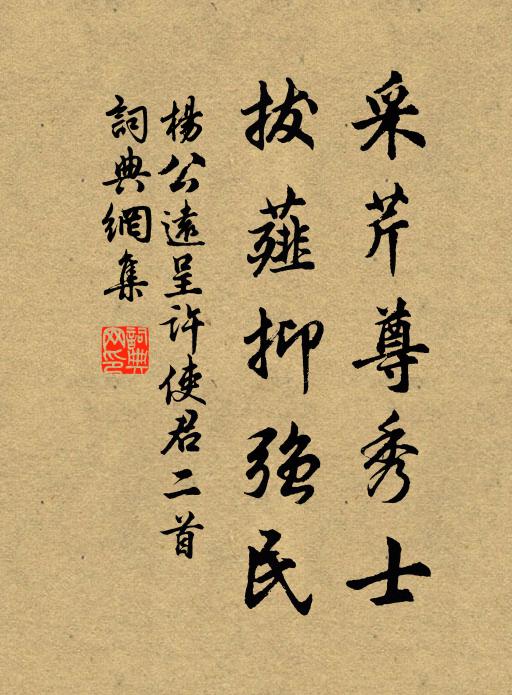 采芹尊秀士
拔薤抑強民
楊公遠呈許使君二首
詞典網集
詞典网印